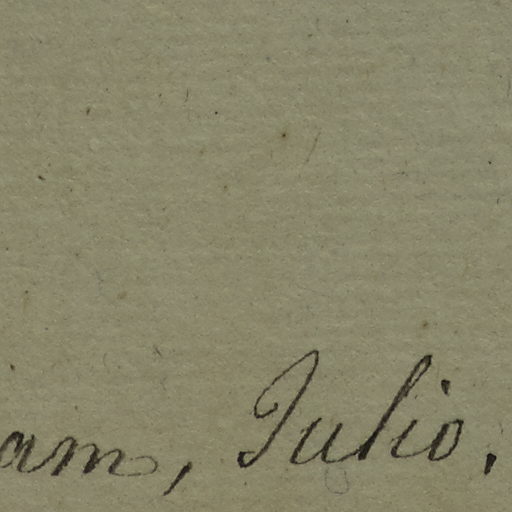 am, Julio.